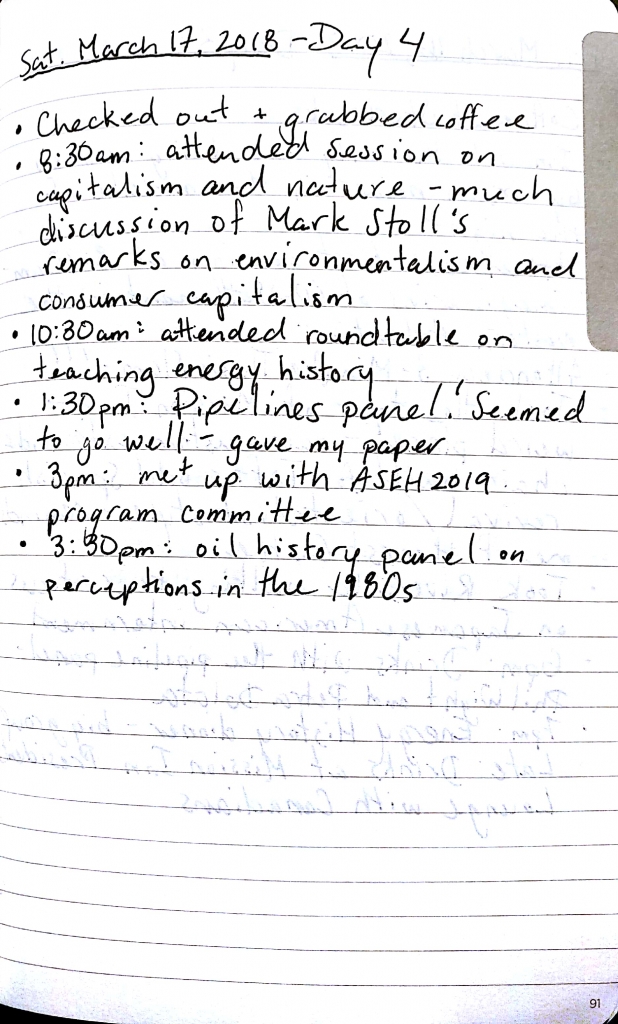 Sat. March 17, 2018 - Day 4
• Checked out + grabbed coffee
• 8:30am: attended session on
capitalism and nature - much
discussion of Mark Stoll's
remarks on environmentalism and
consumer capitalism
• 10:30am: attended roundtable on
teaching energy history
• 1:30pm: Pipelines panel! Seemed
to go well - gave my paper
• 3pm: met up with ASEH 2019
program committee
• 3:30pm: oil history panel on
perceptions in the 1980s
91